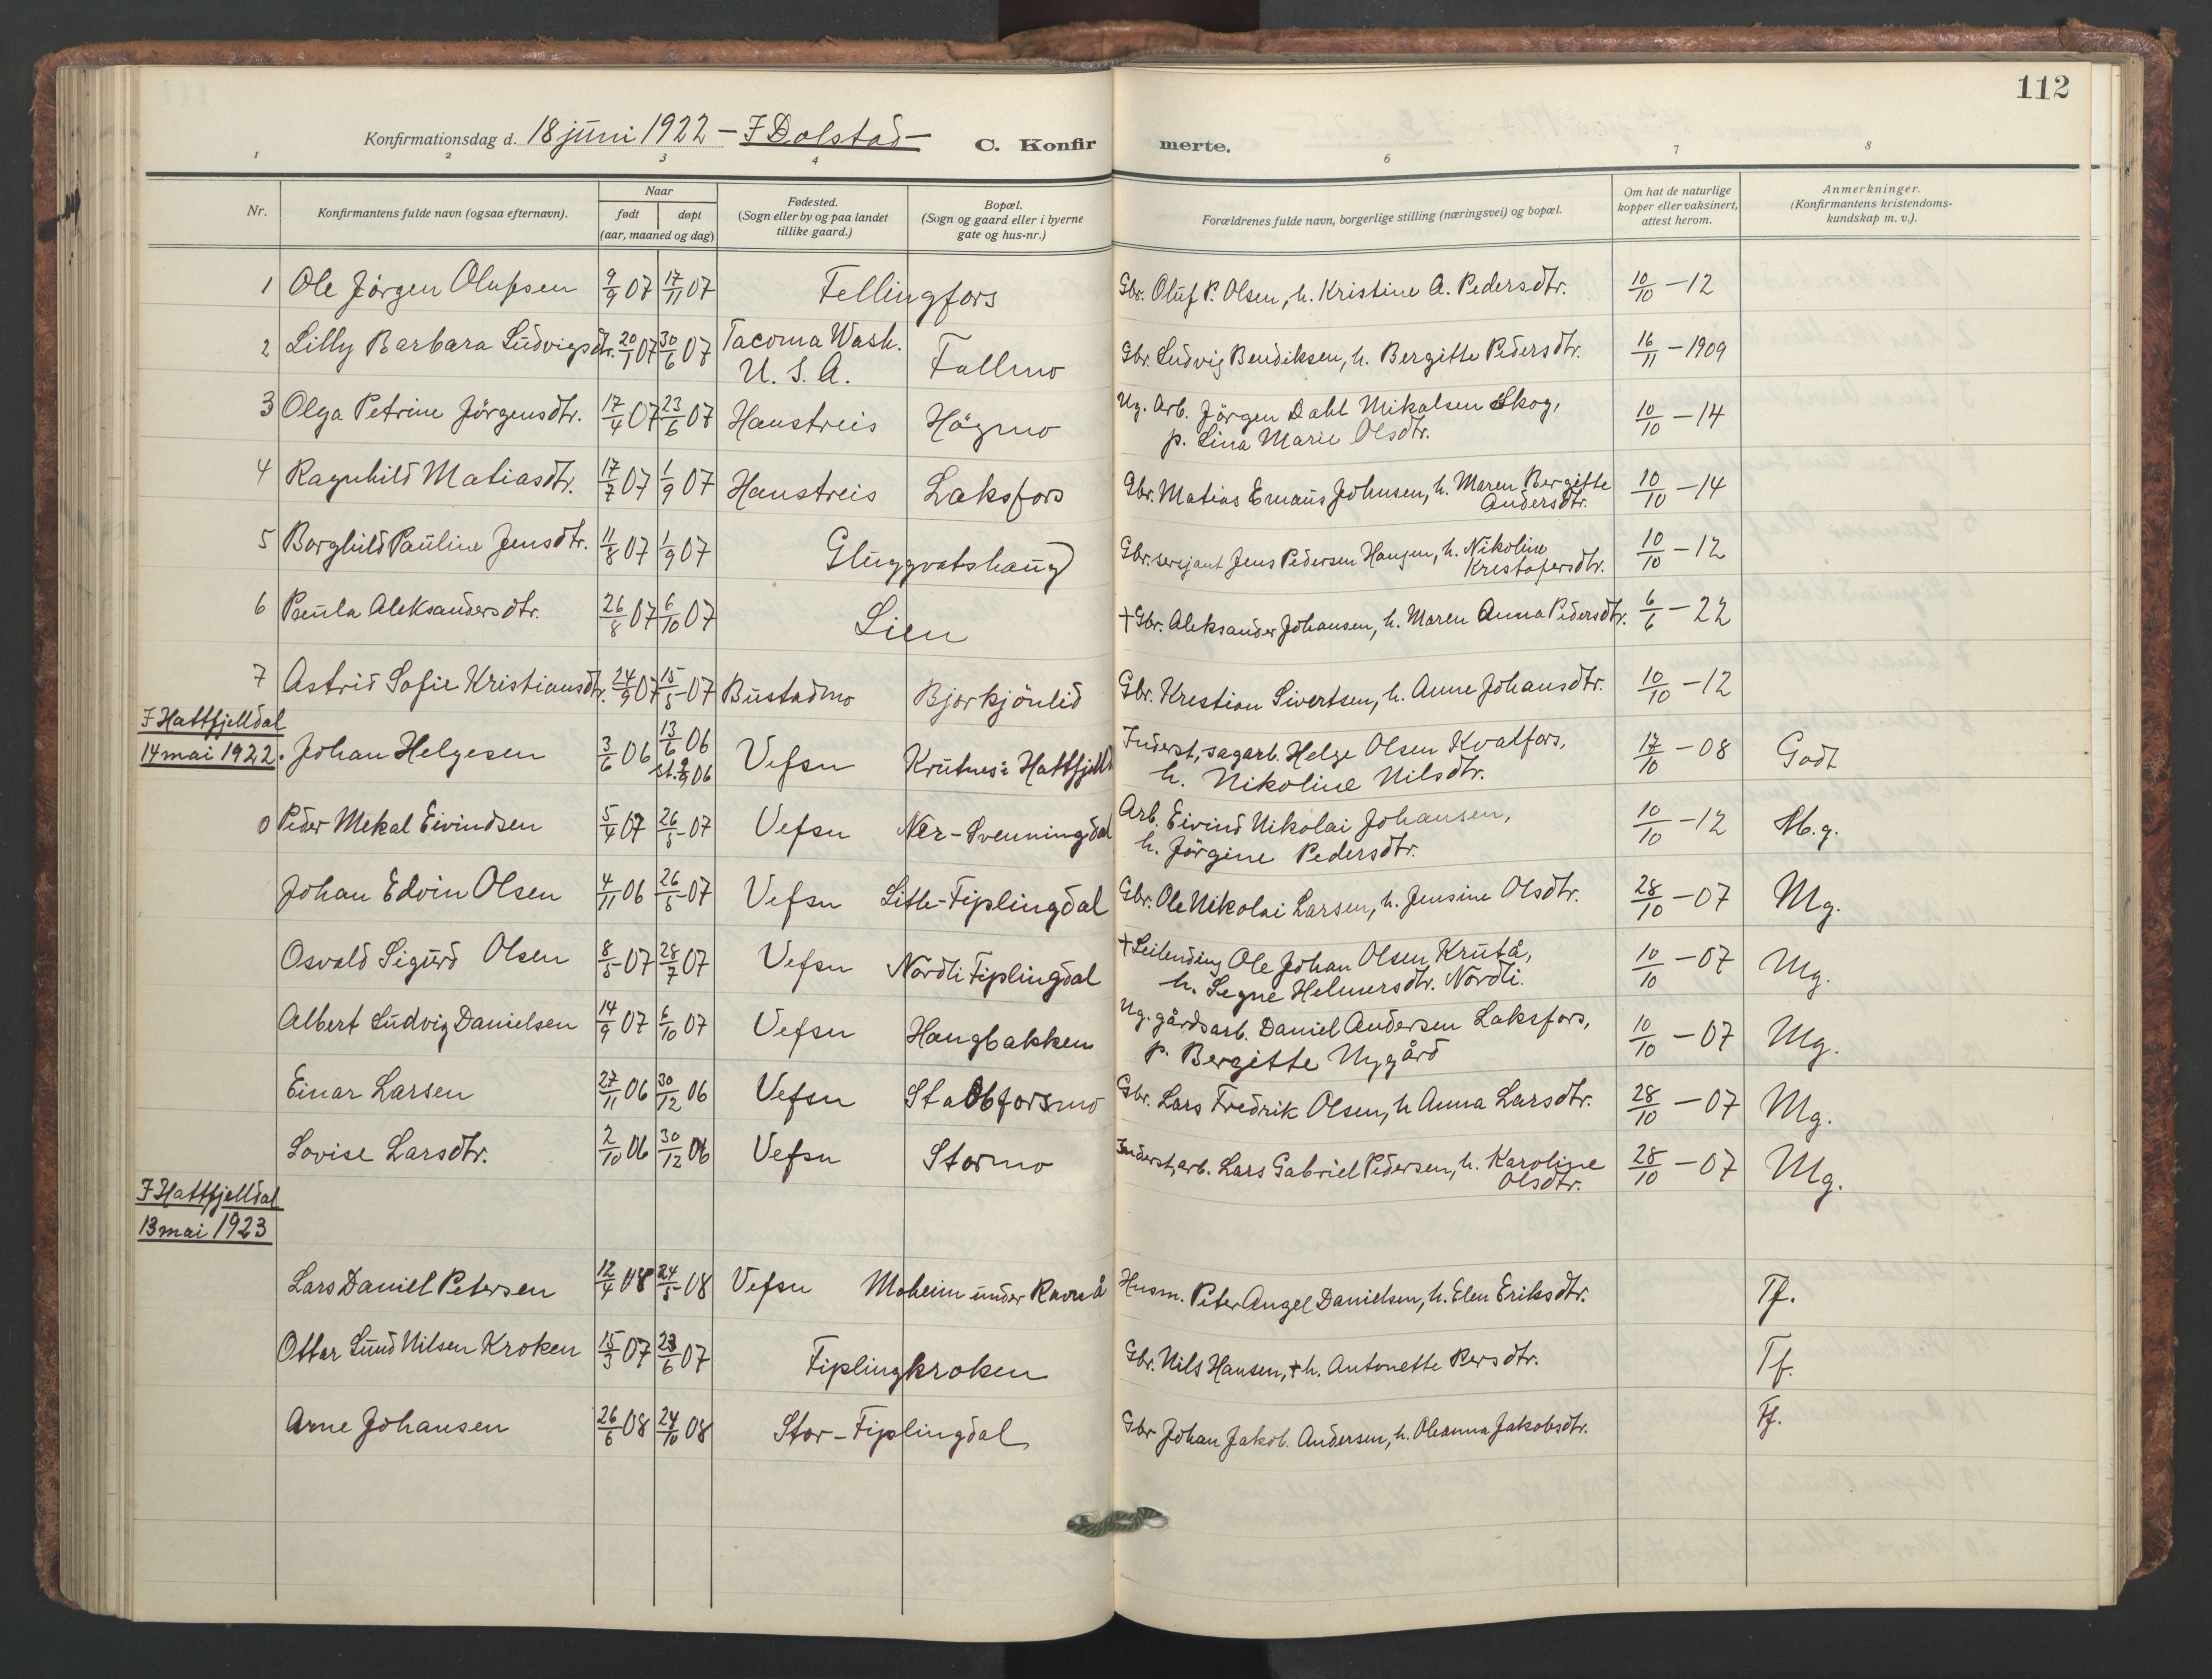 112
Konfirmationsdag d. 18 juni 1922 – I Dolstad –
C. Konfirmerte.
1 2 3 4 6 7 8
Nr.
Konfirmantens fulde navn (ogsaa efternavn).
Naar
født
døpt
(aar, maaned og dag)
Fødested.
(Sogn eller by og paa landet
tillike gaard.)
Bopæl.
(Sogn og gaard eller i byerne
gate og hus-nr.)
Forældrenes fulde navn, borgerlige stilling (næringsvei) og bopæl.
Om hat de naturlige
kopper eller vaksinert,
attest herom.
Anmerkninger.
(Konfirmantens kristendoms-
kundskap m. v.).
1 Ole Jörgen Olufsen 9/9 07 17/11 07 Fellingfors Gbr. Oluf P. Olsen, h. Kristine A. Pedersdtr. 10/10 – 12
2 Lilly Barbara Ludvigsdtr. 20/1 07 30/6 07 Tacoma Wash.
U. S. A. Fallmo Gbr. Ludvig Bendiksen, h. Bergitte Pedersdtr. 16/11 – 1909
3 Olga Petrine Jörgensdtr. 17/4 07 23/6 07 Haustreis Högmo Ug. Arb. Jörgen Dahl Mikalsen Skog,
p. Lina Marie Olsdtr. 10/10 – 14
4 Ragnhild Matiasdtr. 17/7 07 1/9 07 Haustreis Laksfors Gbr. Matias Emaus Johnsen, h. Maren Bergitte
Andersdtr. 10/10 – 14
5 Borghild Pauline Jensdtr. 11/8 07 1/9 07 Gluggvatshaug Gbr. sersjant Jens Pedersen Haugen, h. Nikoline
Kristofersdtr. 10/10 – 12
6 Paula Aleksandersdtr. 26/8 07 6/10 07 Lien + Gbr. Aleksander Johansen, h. Maren Anna Pedersdtr. 6/6 – 22
7 Astrid Sofie Kristiansdtr. 24/9 07 15/5 07 Bustadmo Bjorkjönlid Gbr. Krestian Sivertsen, h. Anne Johansdtr. 10/10 – 12
I Hattfjelldal
14 mai 1922. Johan Helgesen 3/6 06 13/6 06
st. 2/9 06 Vefsn Krutnes i Hattfjelld Inderst, sagarb. Helge Olsen Kvalfors,
h. Nikoline Nilsdtr. 17/10 – 08 Godt
0 Peder Mekal Eivindsen 5/4 07 26/5 07 Vefsn Ner-Svenningdal Arb. Eivind Nikolai Johansen,
h. Jörgine Pedersdtr. 10/10 – 12 M.g.
Johan Edvin Olsen 4/11 06 26/5 07 Vefsn Litle-Fiplingdal Gbr. Ole Nikolai Larsen, h. Jensine Olsdtr. 28/10 – 07 Mg.
Osvald Sigurd Olsen 8/5 07 28/7 07 Vefsn Nordli Fiplingdal + Leilending Ole Johan Olsen Krutå,
h. Segne Helmersdtr. Nordli. 10/10 – 07 Mg.
Albert Ludvig Danielsen 14/9 07 6/10 07 Vefsn Haugbakken Ug. gårdsarb. Daniel Andersen Laksfors,
p. Bergitte Nygård 10/10 – 07 Mg.
Einar Larsen 27/11 06 30/12 06 Vefsn Stabbforsmo Gbr. Lars Fredrik Olsen, h Anna Larsdtr. 28/10 – 07 Mg.
Lovise Larsdtr. 2/10 06 30/12 06 Vefsn Stormo Inderst, arb. Lars Gabriel Pedersen, h. Karoline
Olsdtr. 28/10 – 07 Mg.
I Hattfjelldal
13 mai 1923
Lars Daniel Petersen 12/4 08 24/5 08 Vefsn Moheim under Ravnå Husm. Peter Angel Danielsen, h. Elen Eriksdtr. Tf.
Ottar Lund Nilsen Kroken 15/3 07 23/6 07 Fiplingkroken Gbr. Nils Hansen, + h. Antonette Persdtr. Tf.
Arne Johansen 26/6 08 24/10 08 Stor-Fiplingdal Gbr Johan Jakob. Andersen, h. Oleanna Jakobsdtr. Tf.